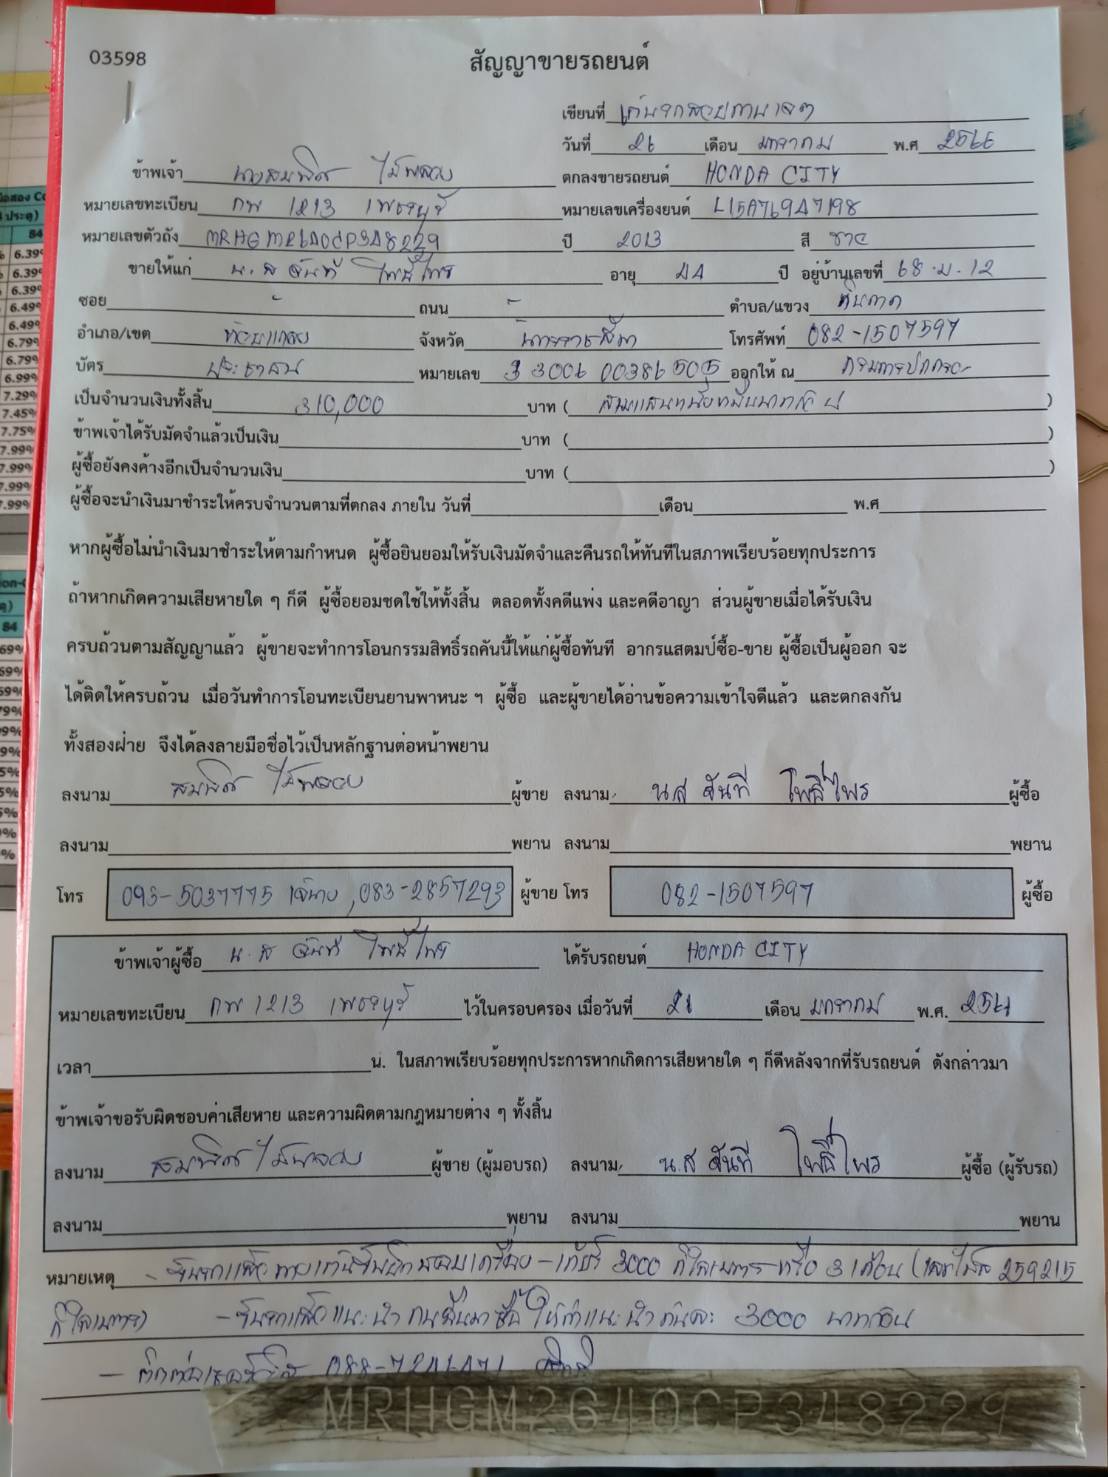 03598
สัญญาขายรถยนต์
เขียนที่
วันที่ 26 เดือน มกราคม พ.ศ 2566
ข้าพเจ้า นางสมพิศ ไม้พลวง ตกลงขายรถยนต์ HONDA CITY
หมายเลขทะเบียน กพ 1213 เพชรบุรี หมายเลขเครื่องยนต์ L15A76947198
หมายเลขตัวถัง MRHGM2640CP348229 ปี 2013 สี ขาว
ขายให้แก่ น.ส จันที โพธิ์ไพร อายุ 44 ปี อยู่บ้านเลขที่ 68 ม.12
ซอย - ถนน - ตำบล/แขวง
อำเภอ/เขต ห้วยแถลง จังหวัด นครราชสีมา โทรศัพท์ 082-1507597
บัตร ประชาชน หมายเลข 3 3006 00386 505 ออกให้ ณ กรมการปกครอง
เป็นจำนวนเงินทั้งสิ้น 310,000 บาท ( สามแสนหนึ่งหมื่นบาทถ้วน )
ข้าพเจ้าได้รับมัดจำแล้วเป็นเงิน บาท ( )
ผู้ซื้อยังคงค้างอีกเป็นจำนวนเงิน บาท ( )
ผู้ซื้อจะนำเงินมาชำระให้ครบจำนวนตามที่ตกลง ภายใน วันที่ เดือน พ.ศ
หากผู้ซื้อไม่นำเงินมาชำระให้ตามกำหนด ผู้ซื้อยินยอมให้รับเงินมัดจำและคืนรถให้ทันทีในสภาพเรียบร้อยทุกประการ
ถ้าหากเกิดความเสียหายใด ๆ ก็ดี ผู้ซื้อยอมชดใช้ให้ทั้งสิ้น ตลอดทั้งคดีแพ่ง และคดีอาญา ส่วนผู้ขายเมื่อได้รับเงิน
ครบถ้วนตามสัญญาแล้ว ผู้ขายจะทำการโอนกรรมสิทธิ์รถคันนี้ให้แก่ผู้ซื้อทันที อากรแสตมป์ซื้อ-ขาย ผู้ซื้อเป็นผู้ออก จะ
ได้ติดให้ครบถ้วน เมื่อวันทำการโอนทะเบียนยานพาหนะ ฯ ผู้ซื้อ และผู้ขายได้อ่านข้อความเข้าใจดีแล้ว และตกลงกัน
ทั้งสองฝ่าย จึงได้ลงลายมือชื่อไว้เป็นหลักฐานต่อหน้าพยาน
ลงนาม สมพิศ ไม้พลวง ผู้ขาย ลงนาม น.ส จันที โพธิ์ไพร ผู้ซื้อ
ลงนาม พยาน ลงนาม พยาน
โทร 093-5037775 , 083-2857293 ผู้ขาย โทร 082-1507597 ผู้ซื้อ
ข้าพเจ้าผู้ซื้อ น.ส จันที โพธิ์ไพร ได้รับรถยนต์ HONDA CITY
หมายเลขทะเบียน กพ 1213 เพชรบุรี ไว้ในครอบครอง เมื่อวันที่ 26 เดือน มกราคม พ.ศ.
เวลา น. ในสภาพเรียบร้อยทุกประการหากเกิดการเสียหายใด ๆ ก็ดีหลังจากที่รับรถยนต์ ดังกล่าวมา
ข้าพเจ้าขอรับผิดชอบค่าเสียหาย และความผิดตามกฎหมายต่าง ๆ ทั้งสิ้น
ลงนาม สมพิศ ไม้พลวง ผู้ขาย (ผู้มอบรถ) ลงนาม น.ส จันที โพธิ์ไพร ผู้ซื้อ (ผู้รับรถ)
ลงนาม พยาน ลงนาม พยาน
หมายเหตุ - เครื่อง - เกียร์ 3000 กิโลเมตร หรือ 3 เดือน ( 259215
กิโลเมตร) - แนะนำ ให้ค่าแนะนำคันละ 3000 บาท
-
MRHGM2640CP348229